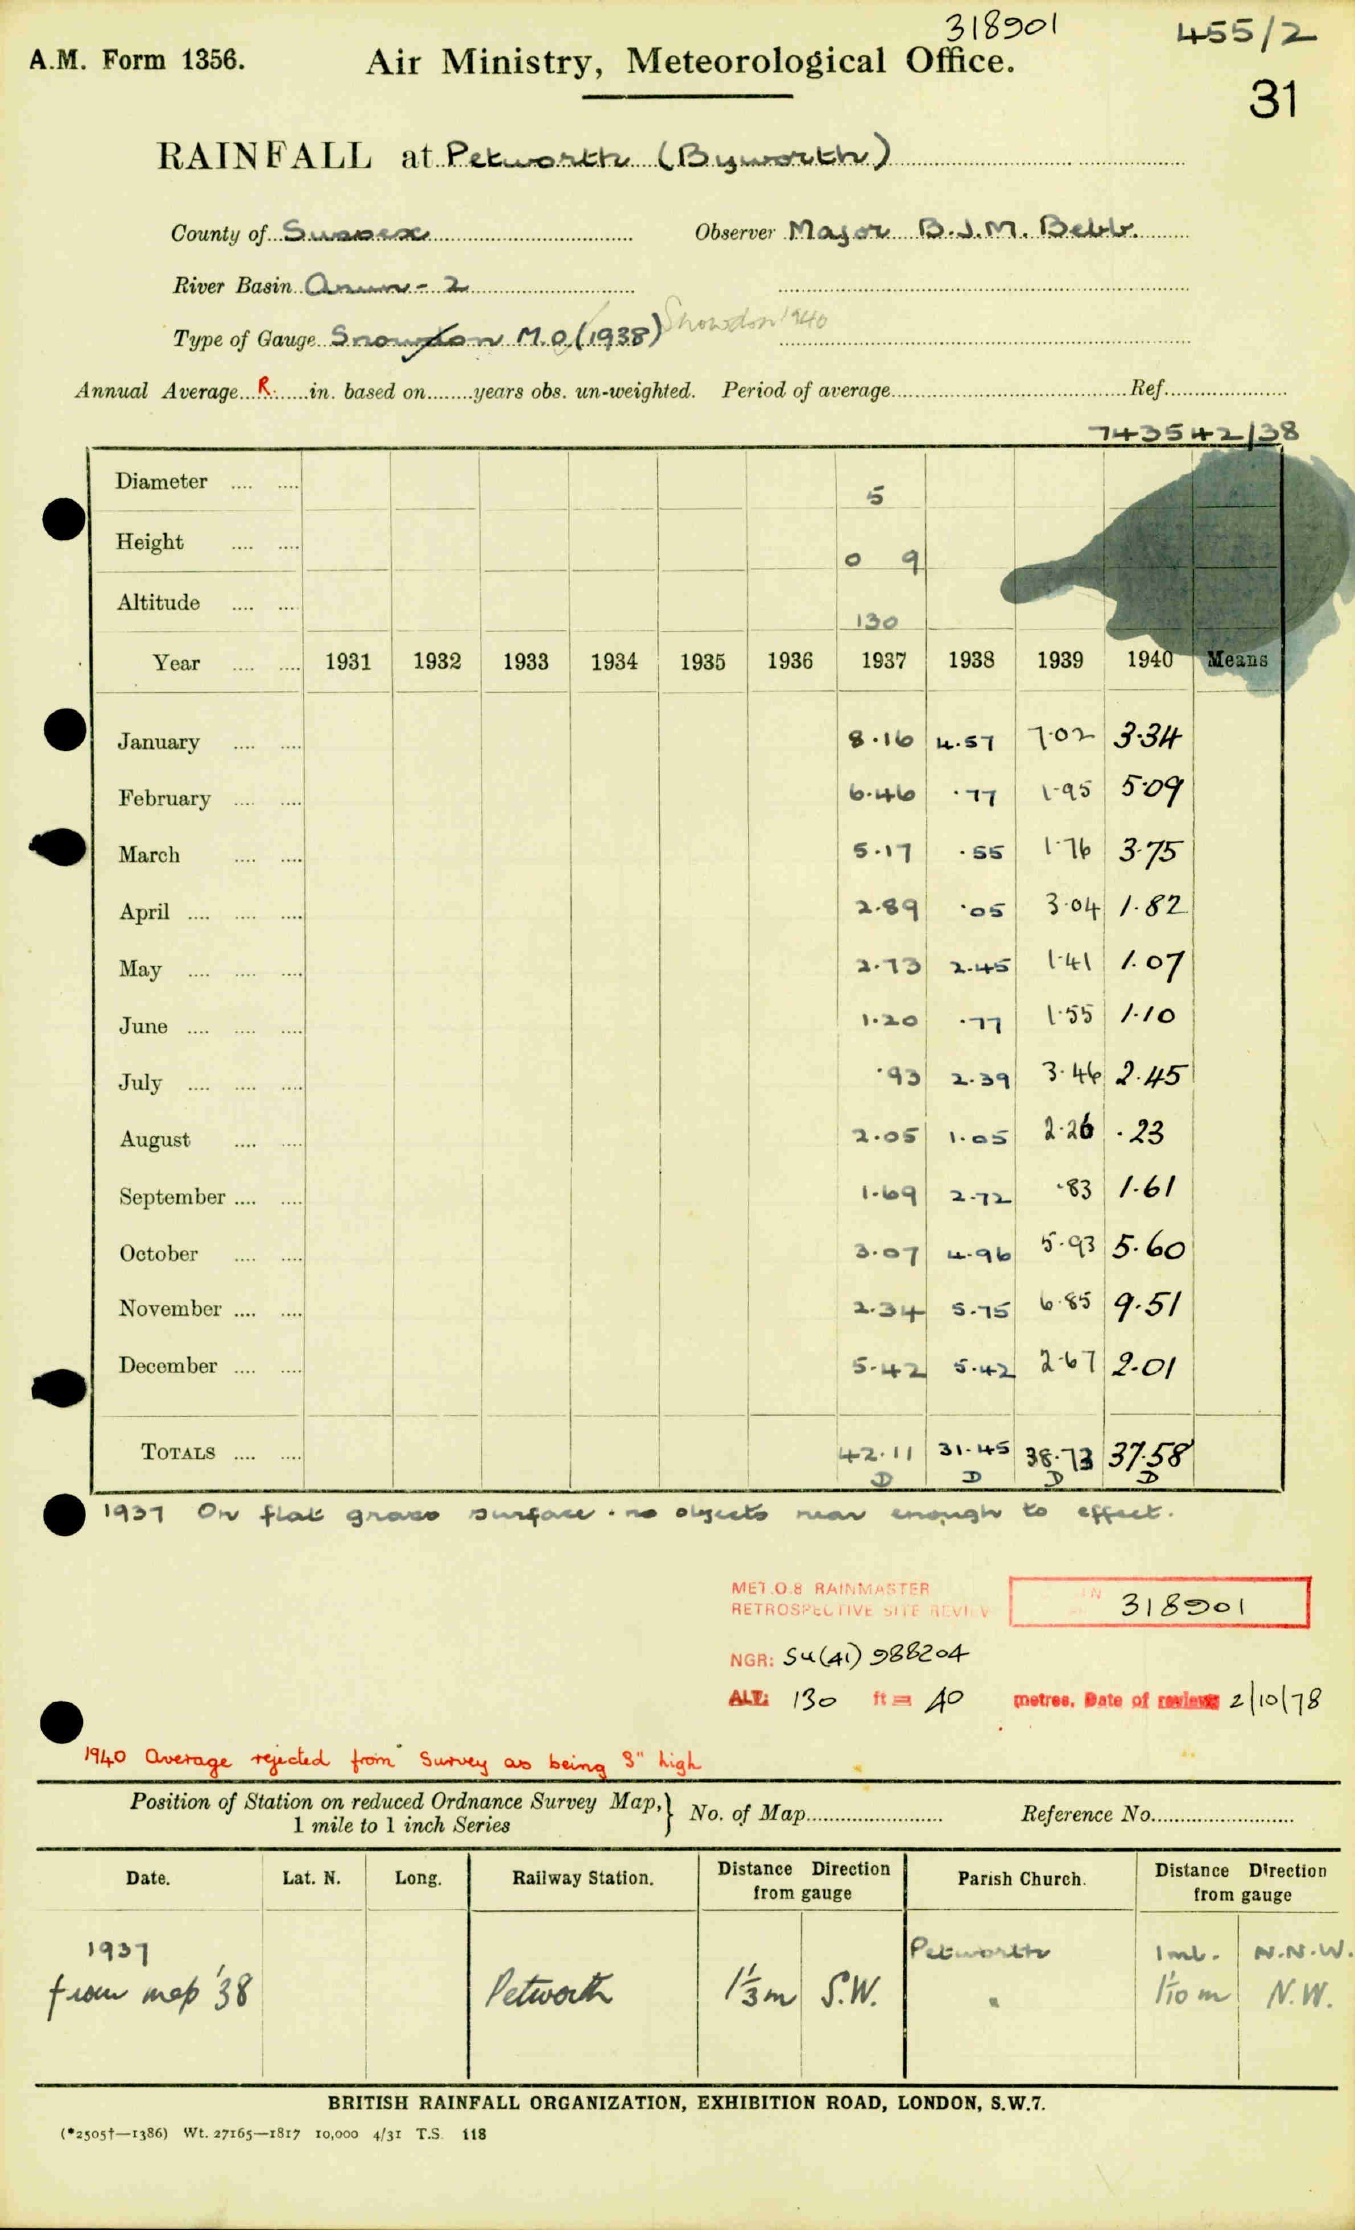 318901
455/2
A.M. Form 1356. Air Ministry, Meteorological Office.
31
RAINFALL at Petworth (Byworth)
County of Sussex Observer Major B.J.M. Bebb.
River Basin Arun - 2
Type of Gauge Snowdon M.O (1938) Snowdon 1940
Annual Average R. in. based on years obs. un-weighted. Period of average Ref.
743542/38
Diameter 5
Height 0 9
Altitude 130
Year 1931 1932 1933 1934 1935 1936 1937 1938 1939 1940 Means
January 8.16 4.57 7.02 3.34
February 6.46 .77 1.95 5.09
March 5.17 .55 1.76 3.75
April 2.89 .05 3.04 1.82
May 2.73 2.45 1.41 1.07
June 1.20 .77 1.55 1.10
July .93 2.39 3.46 2.45
August 2.05 1.05 2.26 .23
September 1.69 2.72 .83 1.61
October 3.07 4.96 5.93 5.60
November 2.34 5.75 6.85 9.51
December 5.42 5.42 2.67 2.01
TOTALS 42.11 31.45 38.73 37.58
D D D D
1937 On flat grass surface. no objects near enough to effect.
MET.O.8 RAINMASTER
RETROSPECTIVE SITE REVIEW 318901
NGR: SU(41) 988204
ALT: 130 ft = 40 metres. Date of review: 2/10/78
1940 Average rejected from Survey as being 3" high
Position of Station on reduced Ordnance Survey Map, 1 mile to 1 inch Series } No. of Map Reference No.
Date. Lat. N. Long. Railway Station. Distance Direction from gauge Parish Church. Distance Direction from gauge
1937 Petworth 1 ml. N.N.W.
from map '38 Petworth 1 1/3 m S.W. " 1 1/10 m N.W.
BRITISH RAINFALL ORGANIZATION, EXHIBITION ROAD, LONDON, S.W.7.
(*2505†—1386) Wt. 27165—1817 10,000 4/31 T.S. 118